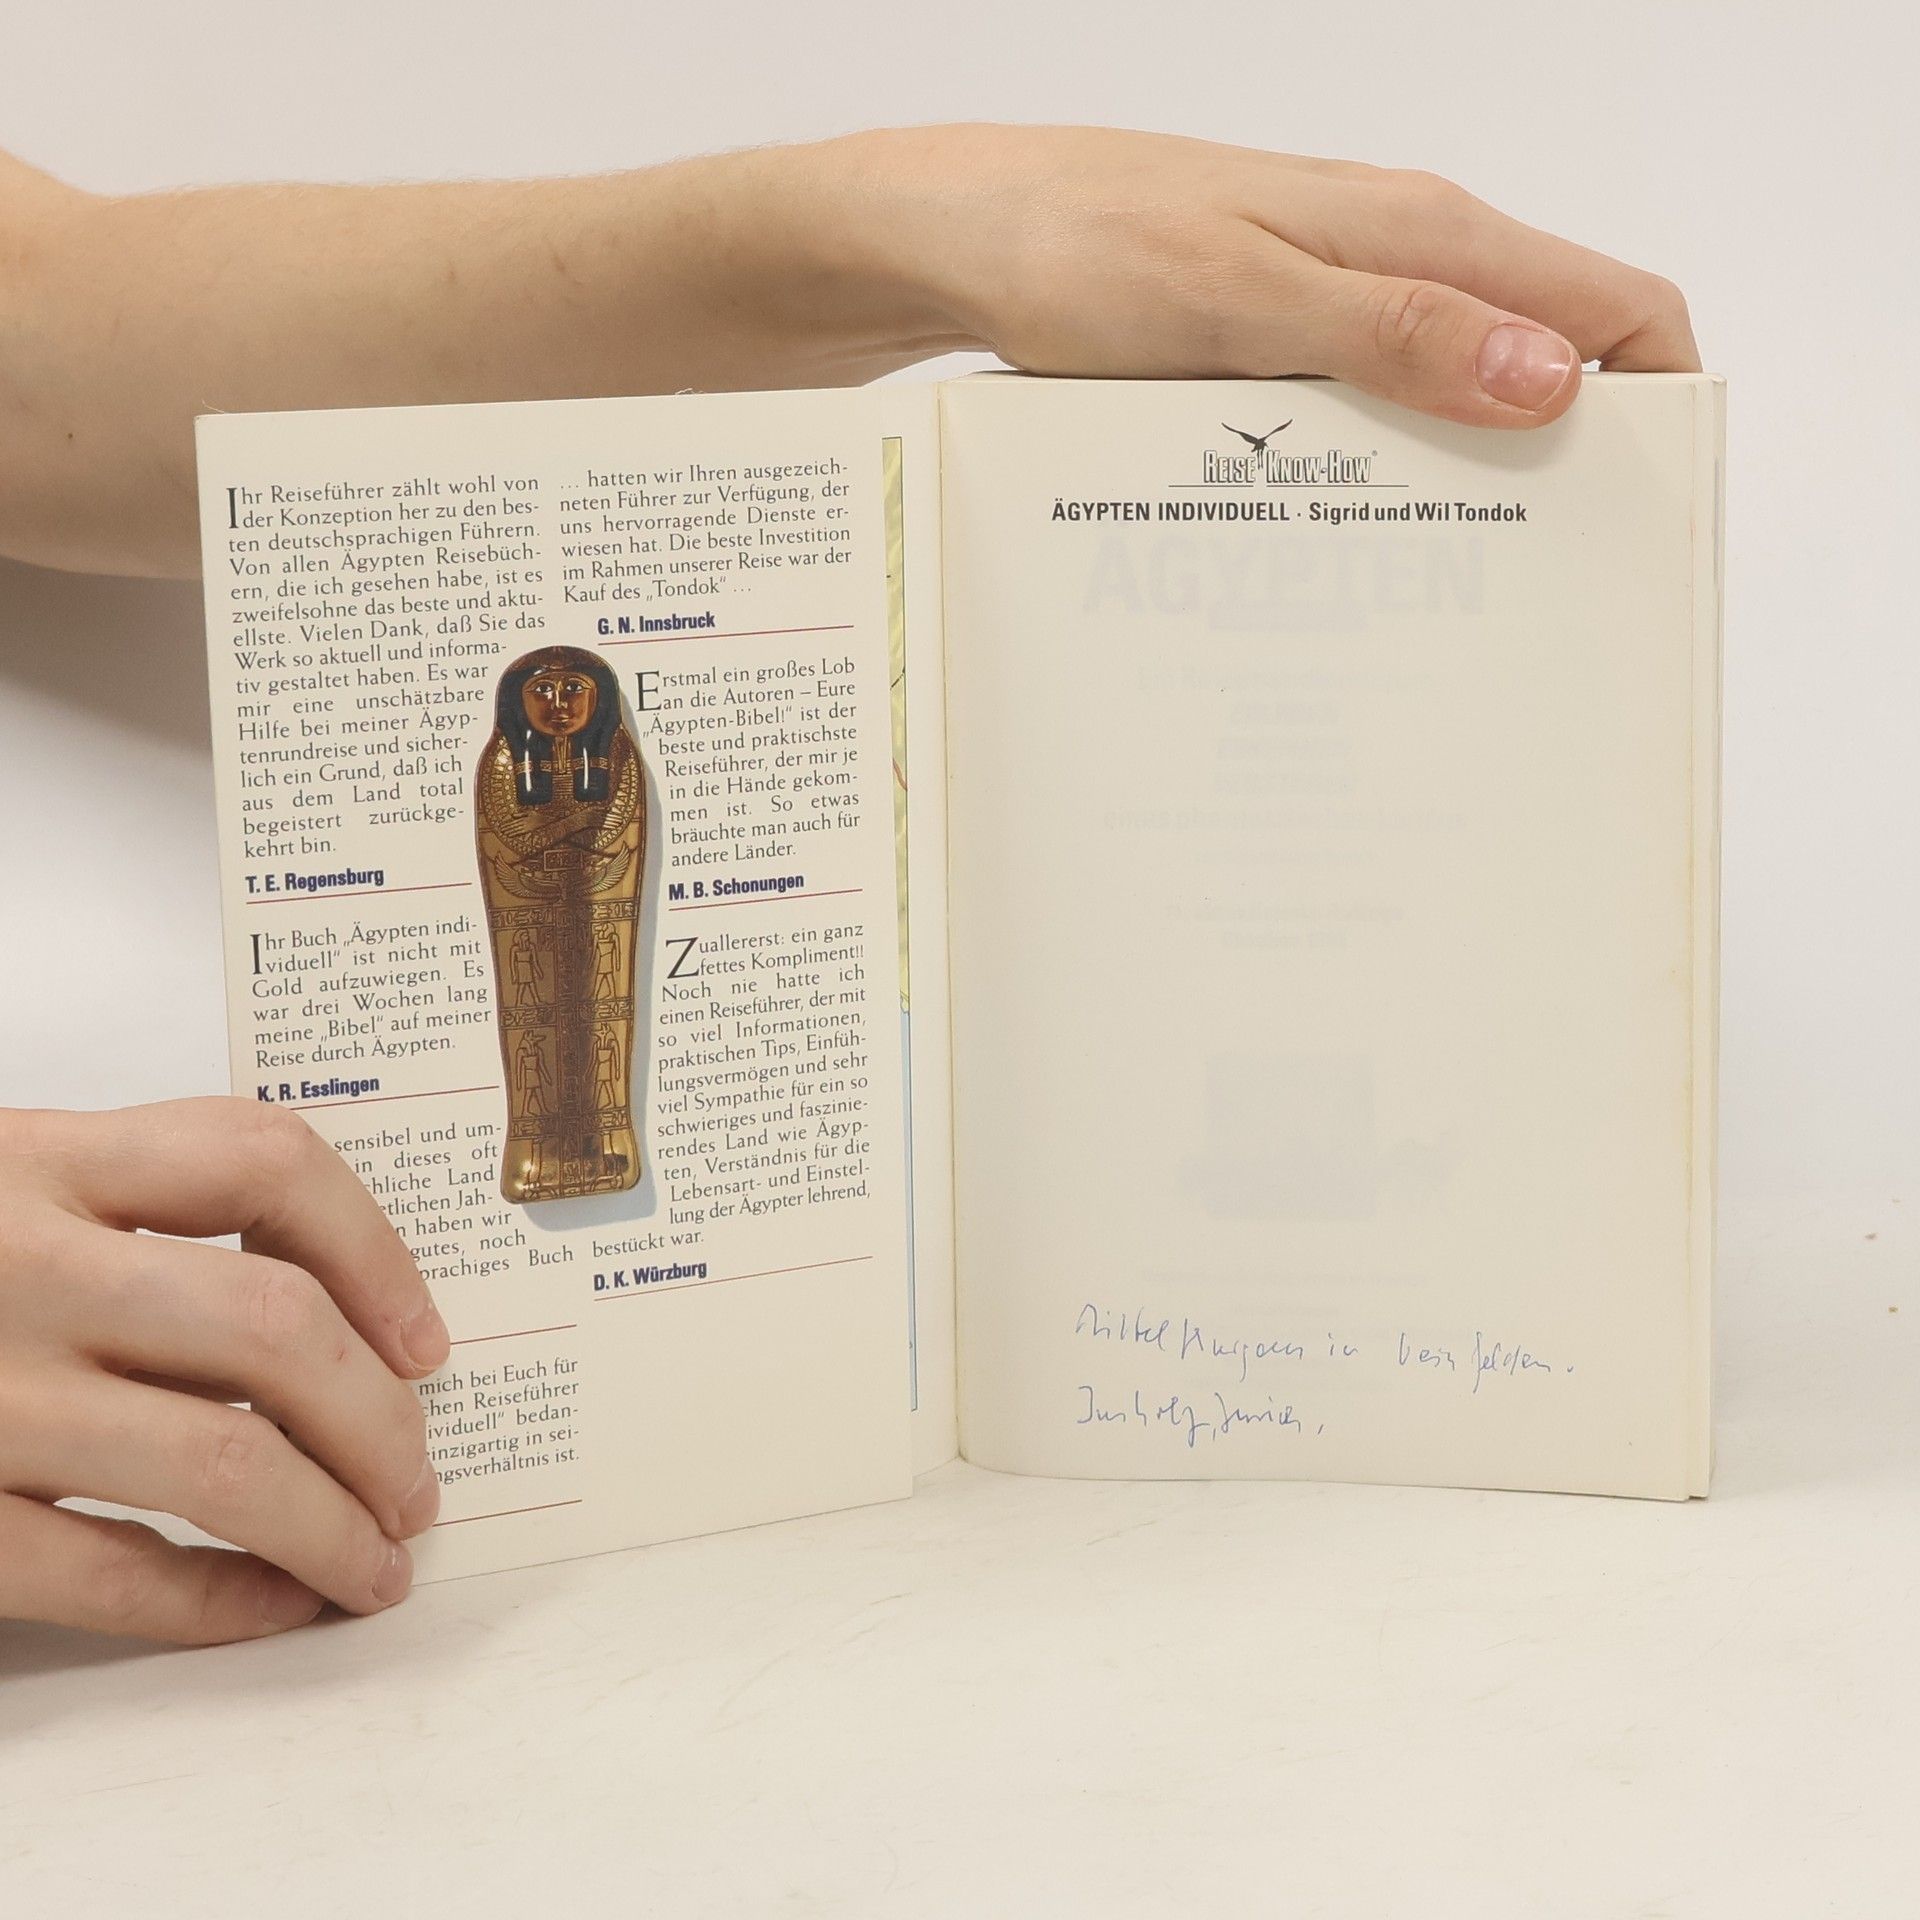 Ihr Reiseführer zählt wohl von
der Konzeption her zu den bes-
ten deutschsprachigen Führern.
Von allen Ägypten Reisebüch-
ern, die ich gesehen habe, ist es
zweifelsohne das beste und aktu-
ellste. Vielen Dank, daß Sie das
Werk so aktuell und informa-
tiv gestaltet haben. Es war
mir eine unschätzbare
Hilfe bei meiner Ägyp-
tenrundreise und sicher-
lich ein Grund, daß ich
aus dem Land total
begeistert zurückge-
kehrt bin.
T. E. Regensburg
Ihr Buch „Ägypten indi-
viduell“ ist nicht mit
Gold aufzuwiegen. Es
war drei Wochen lang
meine „Bibel“ auf meiner
Reise durch Ägypten.
K. R. Esslingen
sensibel und um-
in dieses oft
chliche Land
etlichen Jah-
n haben wir
gutes, noch
prachiges Buch
mich bei Euch für
chen Reiseführer
ividuell“ bedan-
einzigartig in sei-
ngsverhältnis ist.
... hatten wir Ihren ausgezeich-
neten Führer zur Verfügung, der
uns hervorragende Dienste er-
wiesen hat. Die beste Investition
im Rahmen unserer Reise war der
Kauf des „Tondok“ ...
G. N. Innsbruck
Erstmal ein großes Lob
an die Autoren – Eure
„Ägypten-Bibel!“ ist der
beste und praktischste
Reiseführer, der mir je
in die Hände gekom-
men ist. So etwas
bräuchte man auch für
andere Länder.
M. B. Schonungen
Zuallererst: ein ganz
fettes Kompliment!!
Noch nie hatte ich
einen Reiseführer, der mit
so viel Informationen,
praktischen Tips, Einfüh-
lungsvermögen und sehr
viel Sympathie für ein so
schwieriges und faszinie-
rendes Land wie Ägyp-
ten, Verständnis für die
Lebensart- und Einstel-
lung der Ägypter lehrend,
bestückt war.
D. K. Würzburg
REISE KNOW-HOW®
ÄGYPTEN INDIVIDUELL · Sigrid und Wil Tondok
in